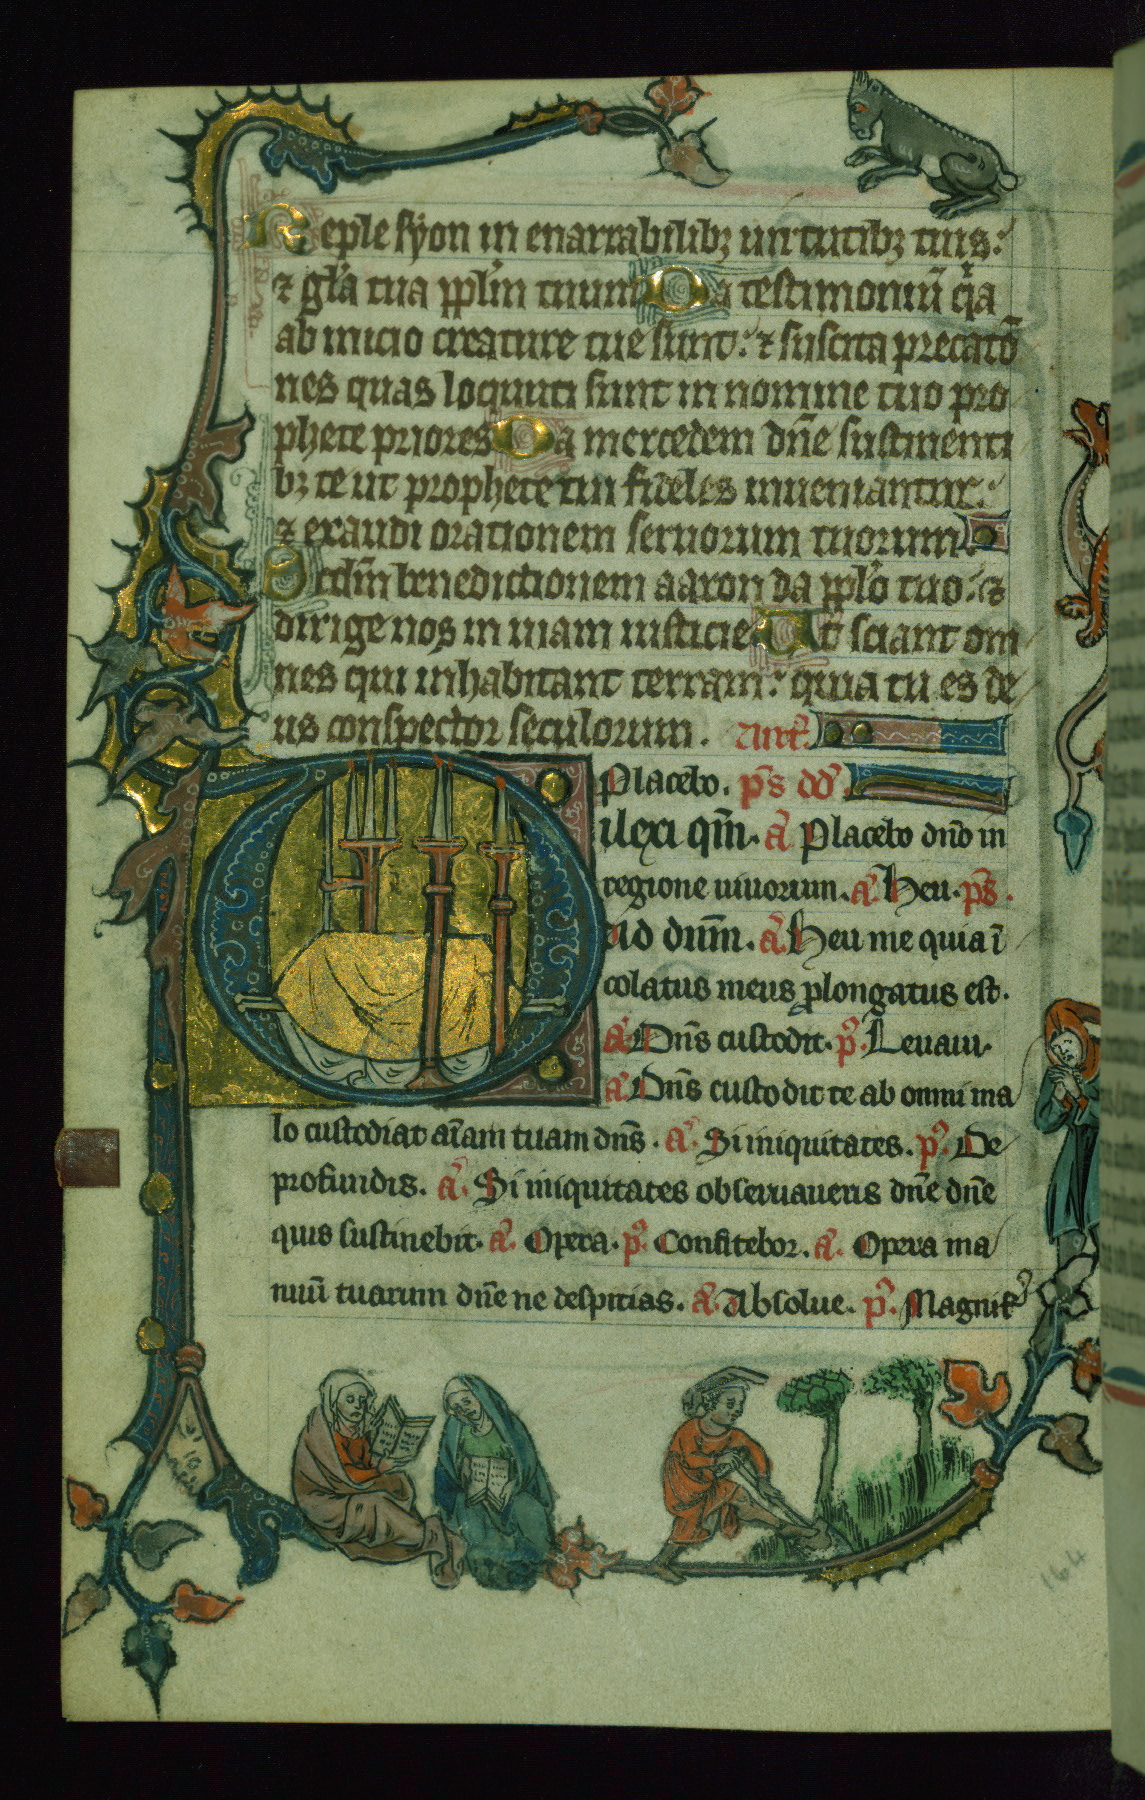 Reple syon in enarrabilibꝫ uirtutibꝫ tuis:
⁊ gl̃a tua ppl̃m tuum Da testimoniũ q̃a
ab inicio creature tue sunt: ⁊ suscita precatõ
nes quas loquuti sunt in nomine tuo pro
phete priores Da mercedem dñe sustinenti
bꝫ te ut prophete tui fideles inueniantur:
⁊ exaudi orationem seruorum tuorum
Scdm̃ benedictionem aaron da ppl̃o tuo: ⁊
dirige nos in uiam iusticie Ut sciant om
nes qui inhabitant terram: quia tu es de
us conspector seculorum. Ant̃.
Placebo. p̃s dd̃.
Dilexi qm̃. a᷑ Placebo dñо in
regione uiuorum. a᷑. Heu. p̃s.
Ad dn̄m. a᷑. Heu me quia ĩ
colatus meus ꝓlongatus est.
a᷑. Dñs custodit. p᷑. Leuaui.
a᷑. Dñs custodit te ab omni ma
lo custodiat aĩam tuam dñs. a᷑. Si iniquitates. p᷑. De
profundis. a᷑. Si iniquitates obseruaueris dñe dñe
quis sustinebit. a᷑. Opera. p᷑. Confitebor. a᷑. Opera ma
nuũ tuarum dñe ne despicias. a᷑. Absolue. p᷑. Magnif᷑
164